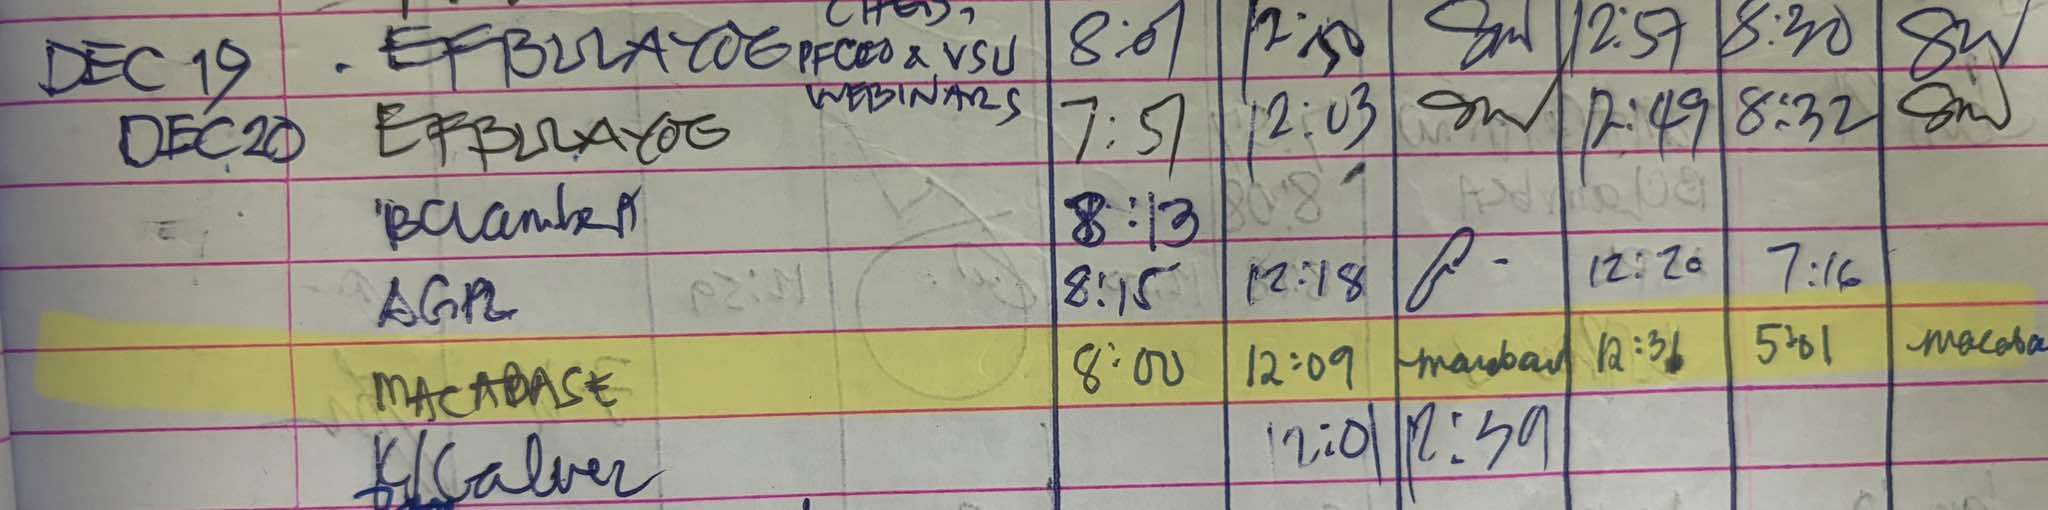 CHED,
DEC 19 . EFBULAYOG PFCOO & VSU 8:01 12:50 12:57 8:30
WEBINARS
DEC 20 EFBULAYOG 7:51 12:03 12:49 8:32
BClambeA 8:13
AGR 8:15 12:18 12:20 7:16
MACABASE 8:00 12:09 12:31 5:01 macaba
12:01 12:59